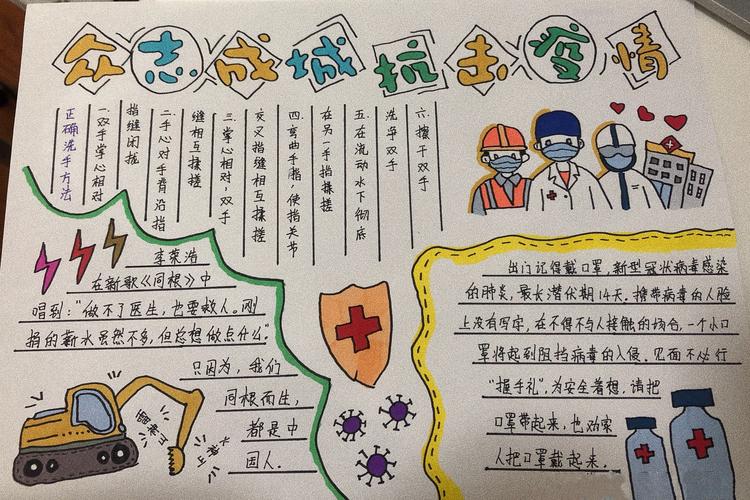 众志成城抗击疫情
正确洗手方法
一.双手掌心相对
指缝闭拢
二.手心对手背沿指
缝相互揉搓
三.掌心相对,双手
交叉指缝相互揉搓
四.弯曲手指,使指关节
在另一手指揉搓
五.在流动水下彻底
洗净双手
六.擦干双手
李荣浩
在新歌《同根》中
唱到:"做不了医生,也要救人。刚
捐的薪水虽然不多,但总想做点什么."
只因为,我们
同根而生,
都是中
国人.
雷神山
火神山
出门记得戴口罩,新型冠状病毒感染
的肺炎,最长潜伏期14天.携带病毒的人脸
上没有写字,在不得不与人接触的场合,一个小口
罩将起到阻挡病毒的入侵.见面不必行
"握手礼",为安全着想,请把
口罩带起来,也劝家
人把口罩戴起来.